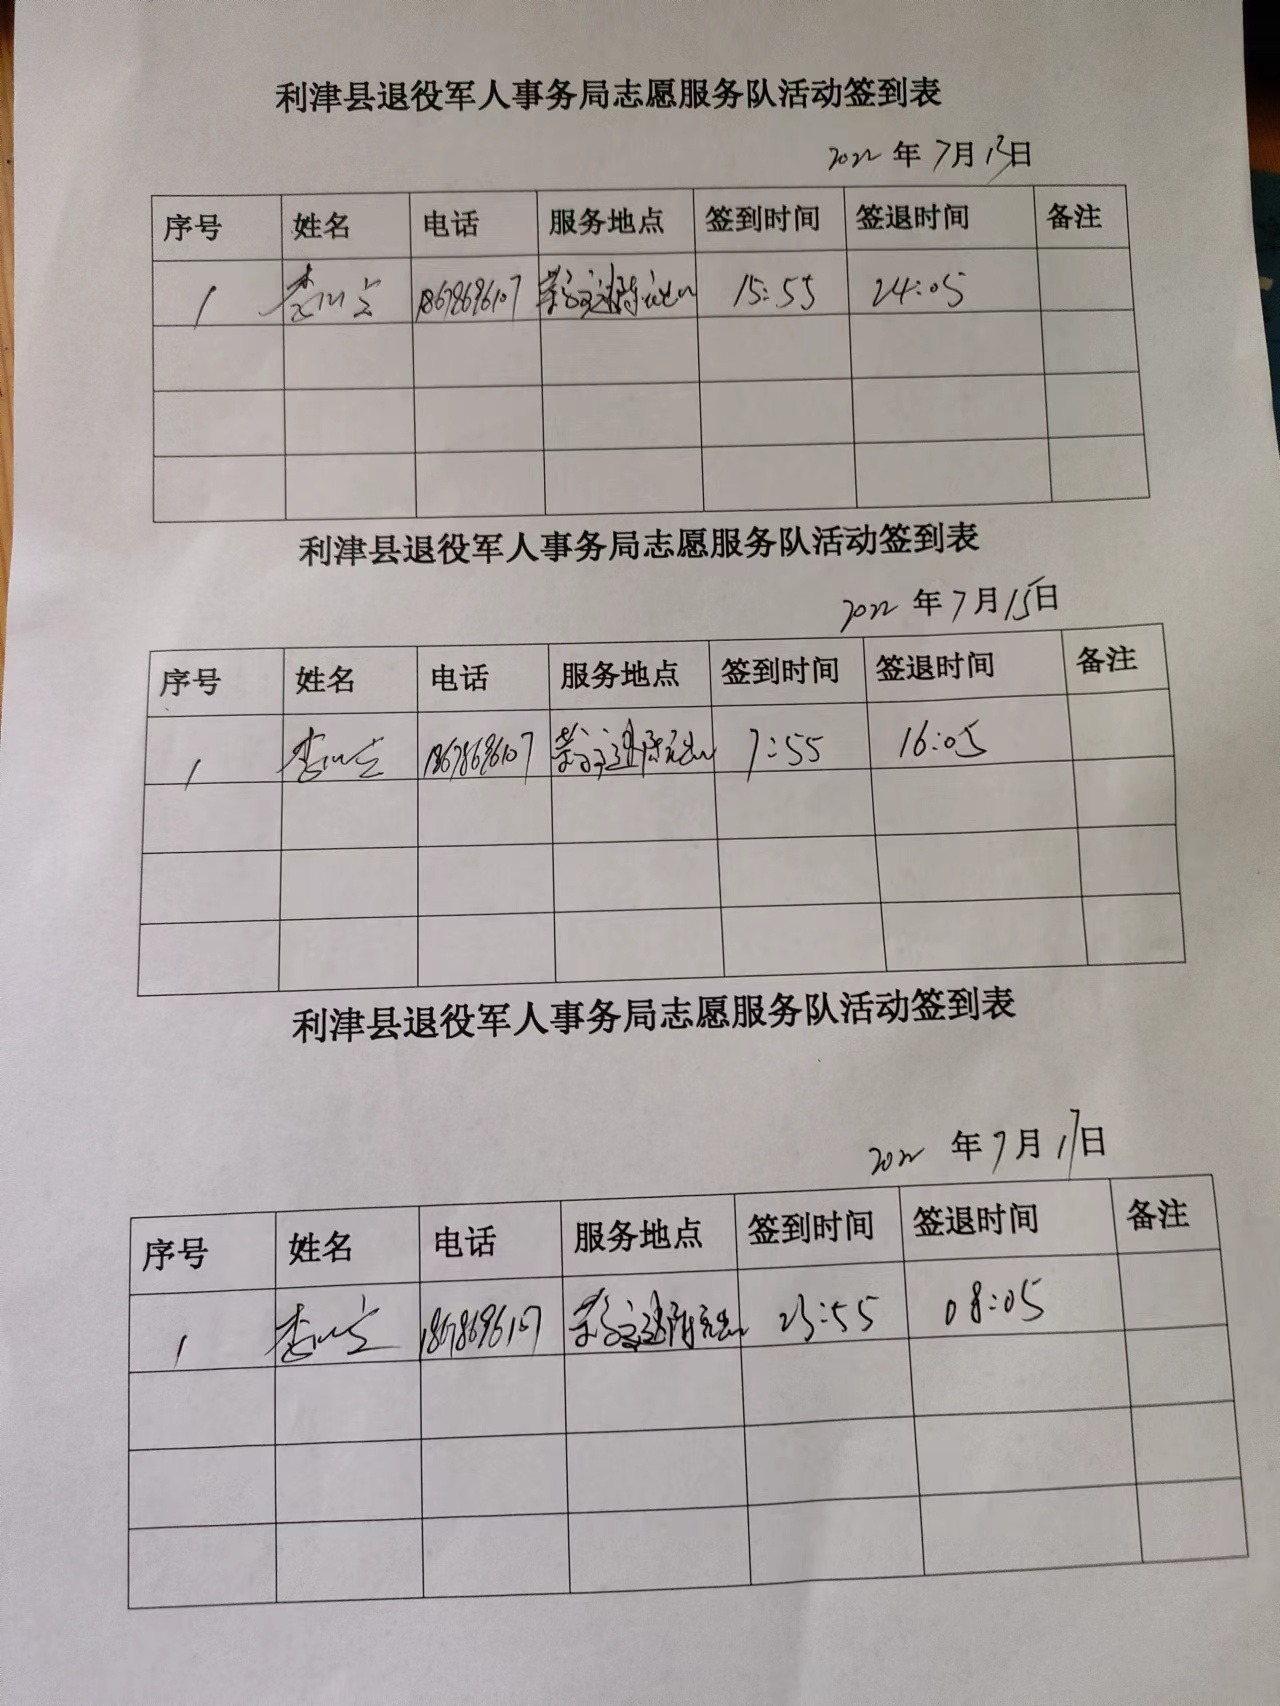 利津县退役军人事务局志愿服务队活动签到表
2022 年 7月 13日
序号 姓名 电话 服务地点 签到时间 签退时间 备注
1 18678696107 15:55 24:05
利津县退役军人事务局志愿服务队活动签到表
2022 年 7月 15日
序号 姓名 电话 服务地点 签到时间 签退时间 备注
1 18678696107 7:55 16:05
利津县退役军人事务局志愿服务队活动签到表
2022 年 7月 17日
序号 姓名 电话 服务地点 签到时间 签退时间 备注
1 18678696107 23:55 08:05